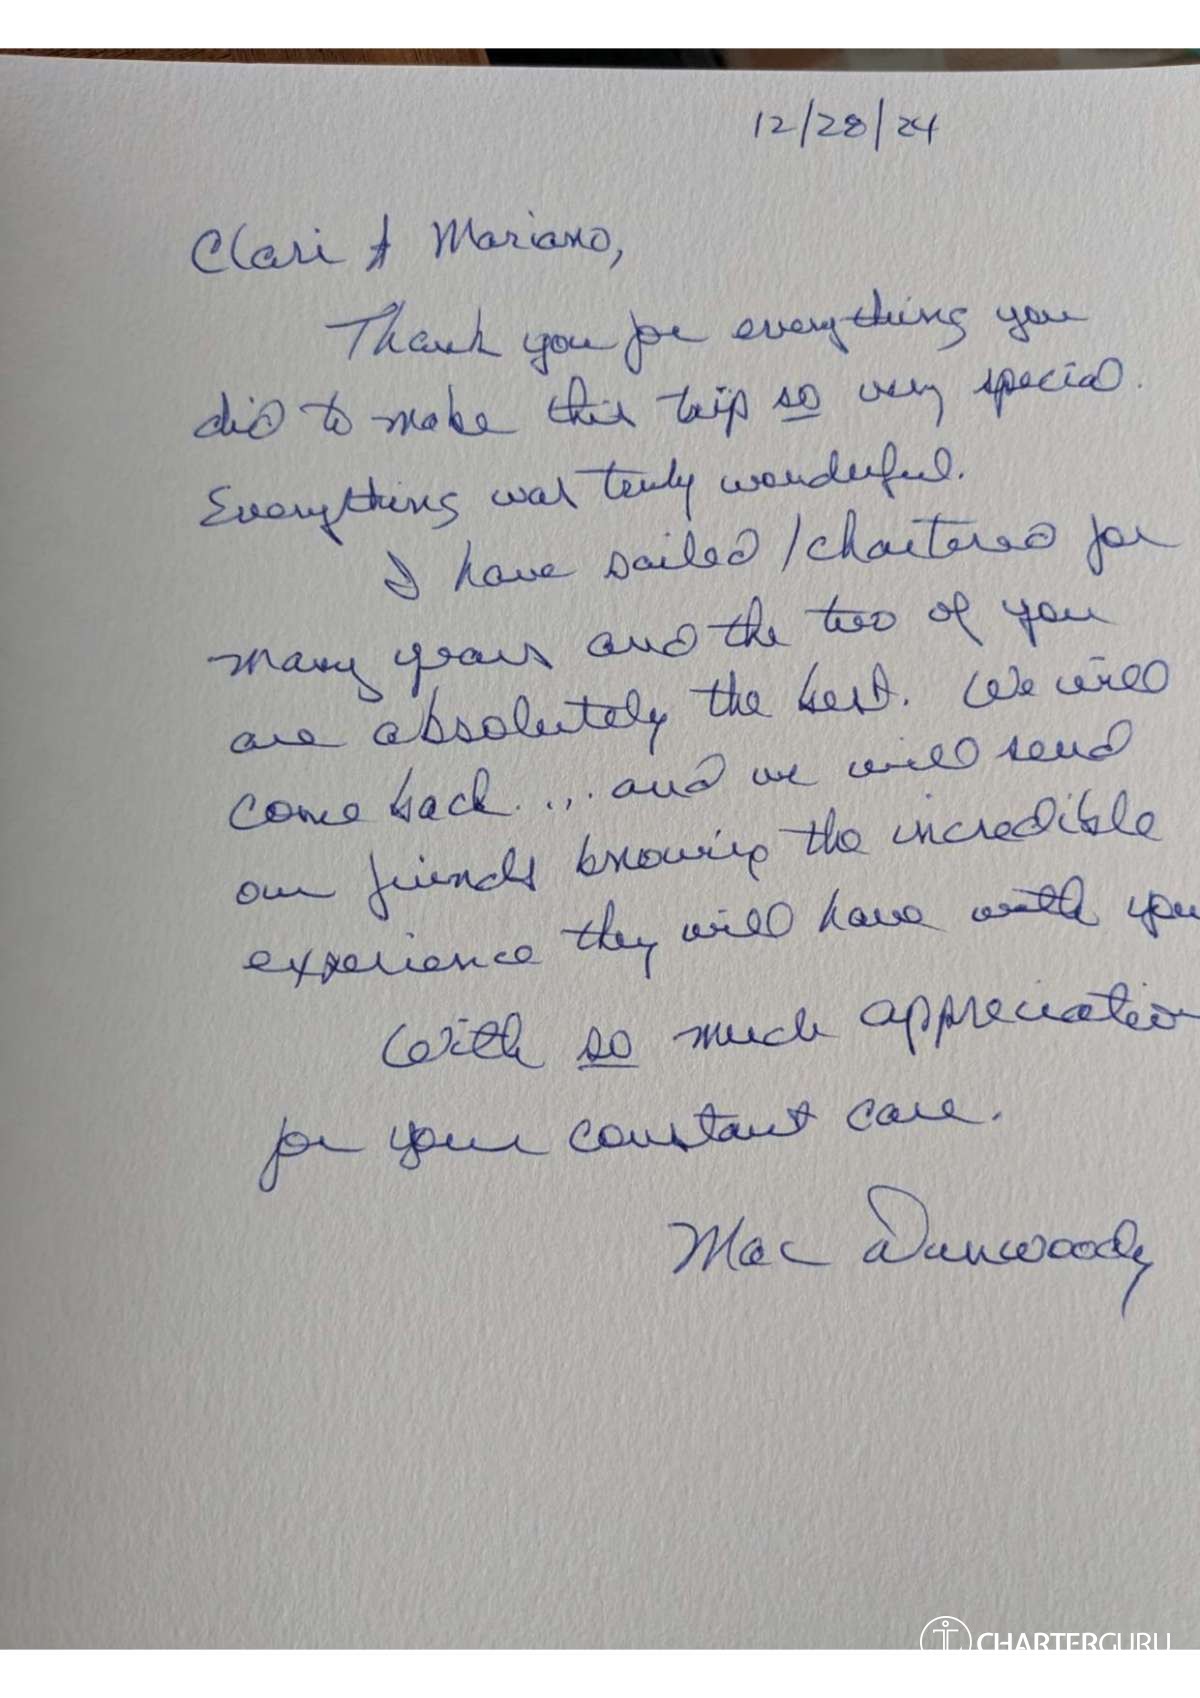 12/28/24
Clari & Mariano,
Thank you for everything you
did to make this trip so very special.
Everything was truly wonderful.
I have sailed/chartered for
many years and the two of you
are absolutely the best. We will
come back.... and we will send
our friends knowing the incredible
experience they will have with you
With so much appreciation
for your constant care.
Mac Dunwoody
CHARTERGURU